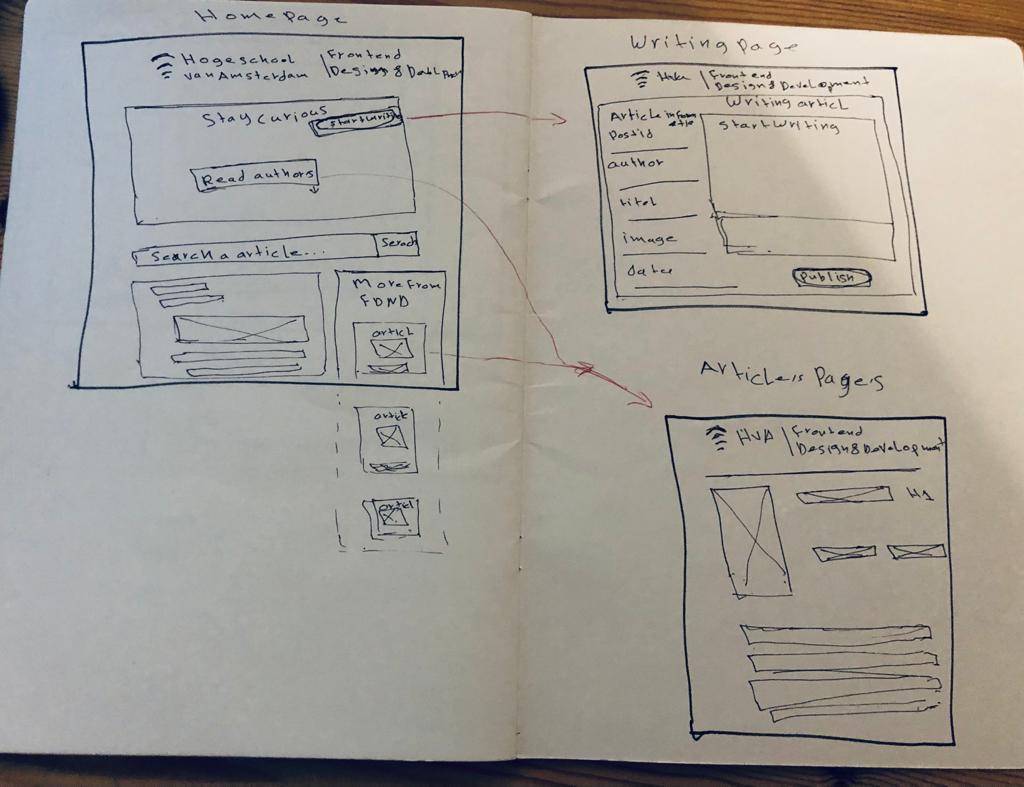 Homepage
Hogeschool
van Amsterdam
Frontend
Design &
Stay curious
Start writing
Read authors
Search a article...
Serach
More from
FDND
articl
artick
articl
Writing page
Frontend
Design & Development
Writing articl
Article
Postid
author
titel
image
date
Start Writing
Publish
Article's Page's
HvA
Frontend
Design & Development
H1